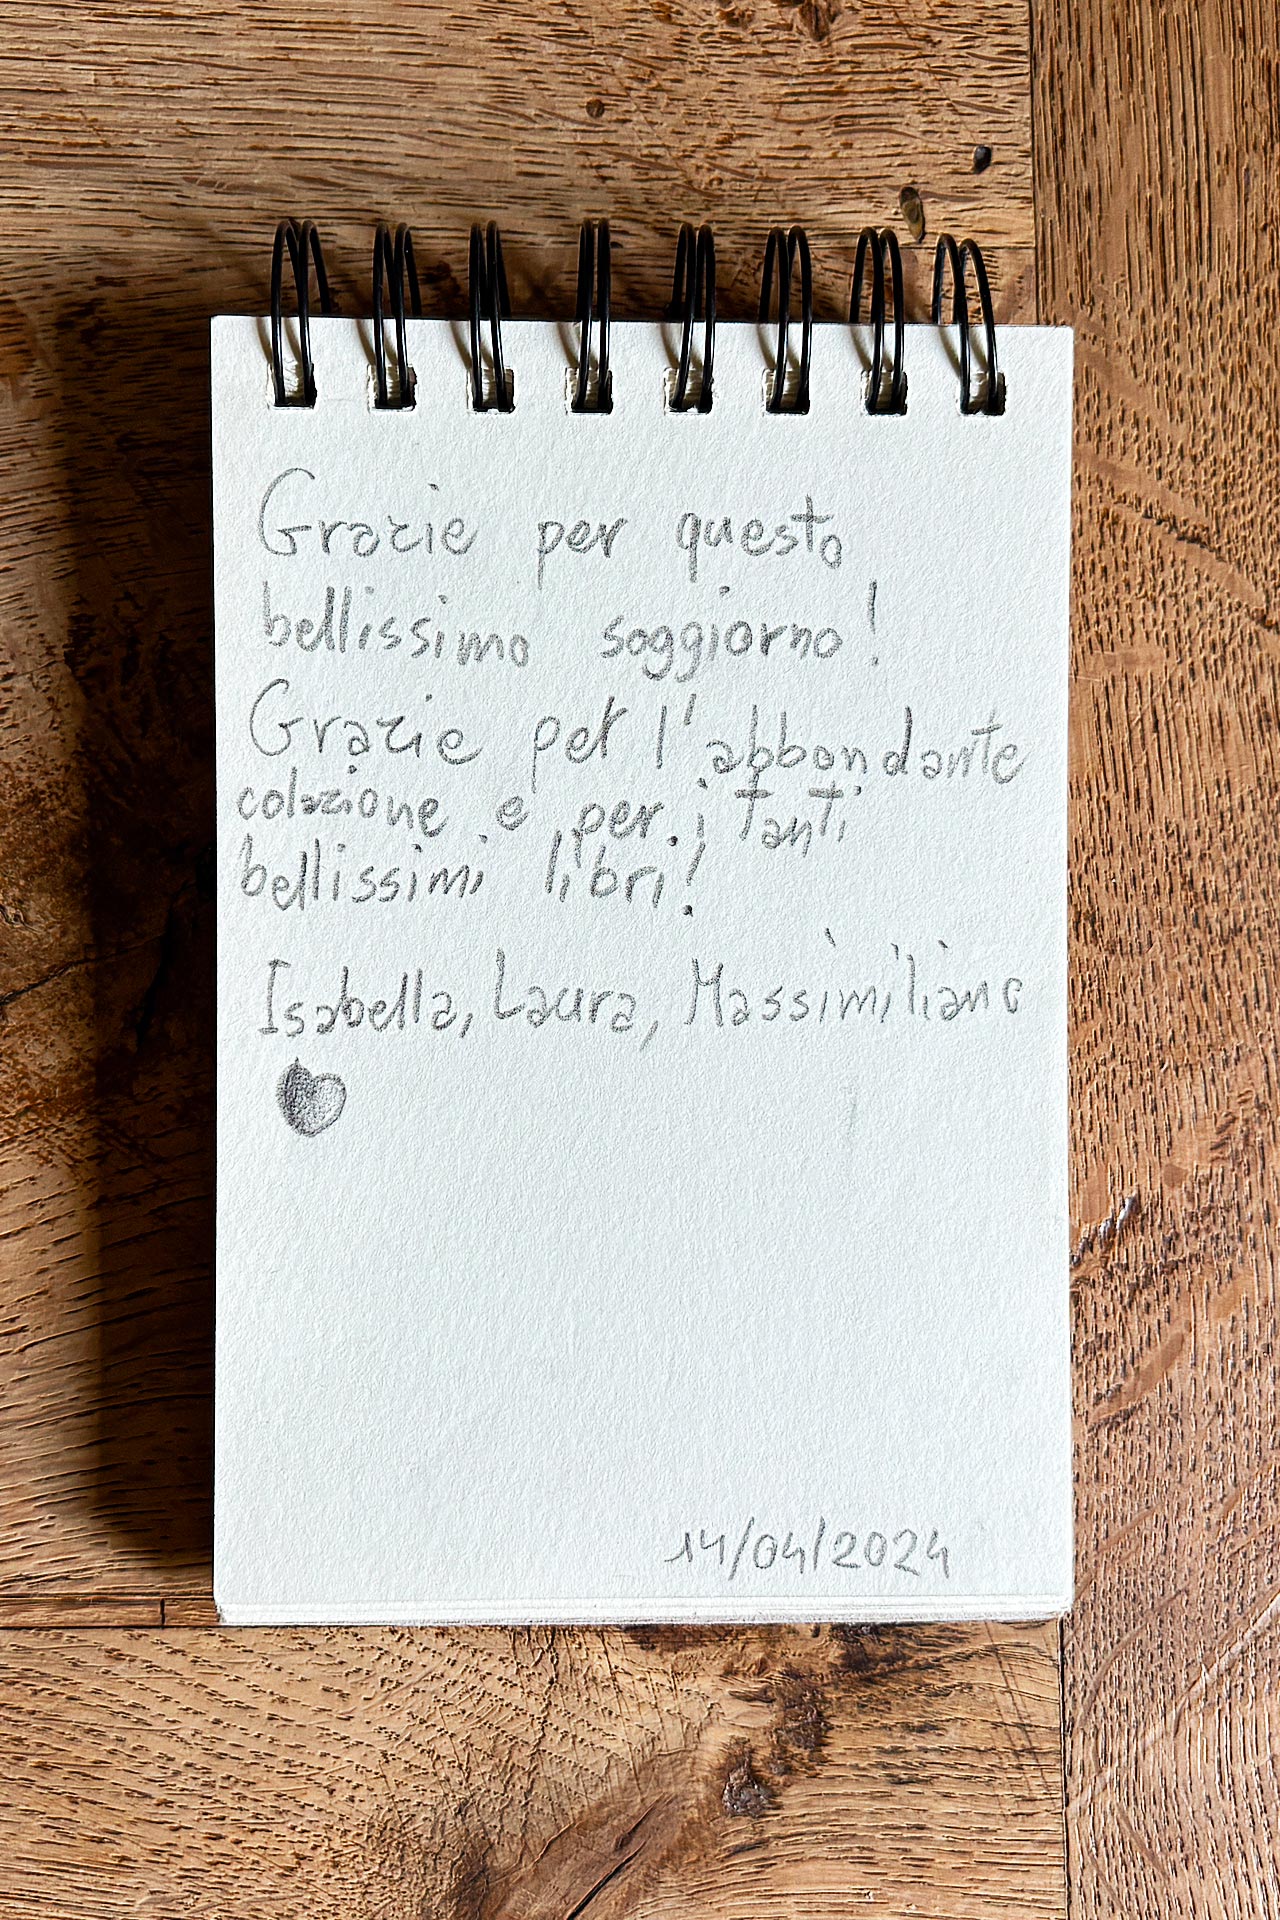 Grazie per questo
bellissimo soggiorno!
Grazie per l'abbondante
colazione e per i tanti
bellissimi libri!
Isabella, Laura, Massimiliano
14/04/2024